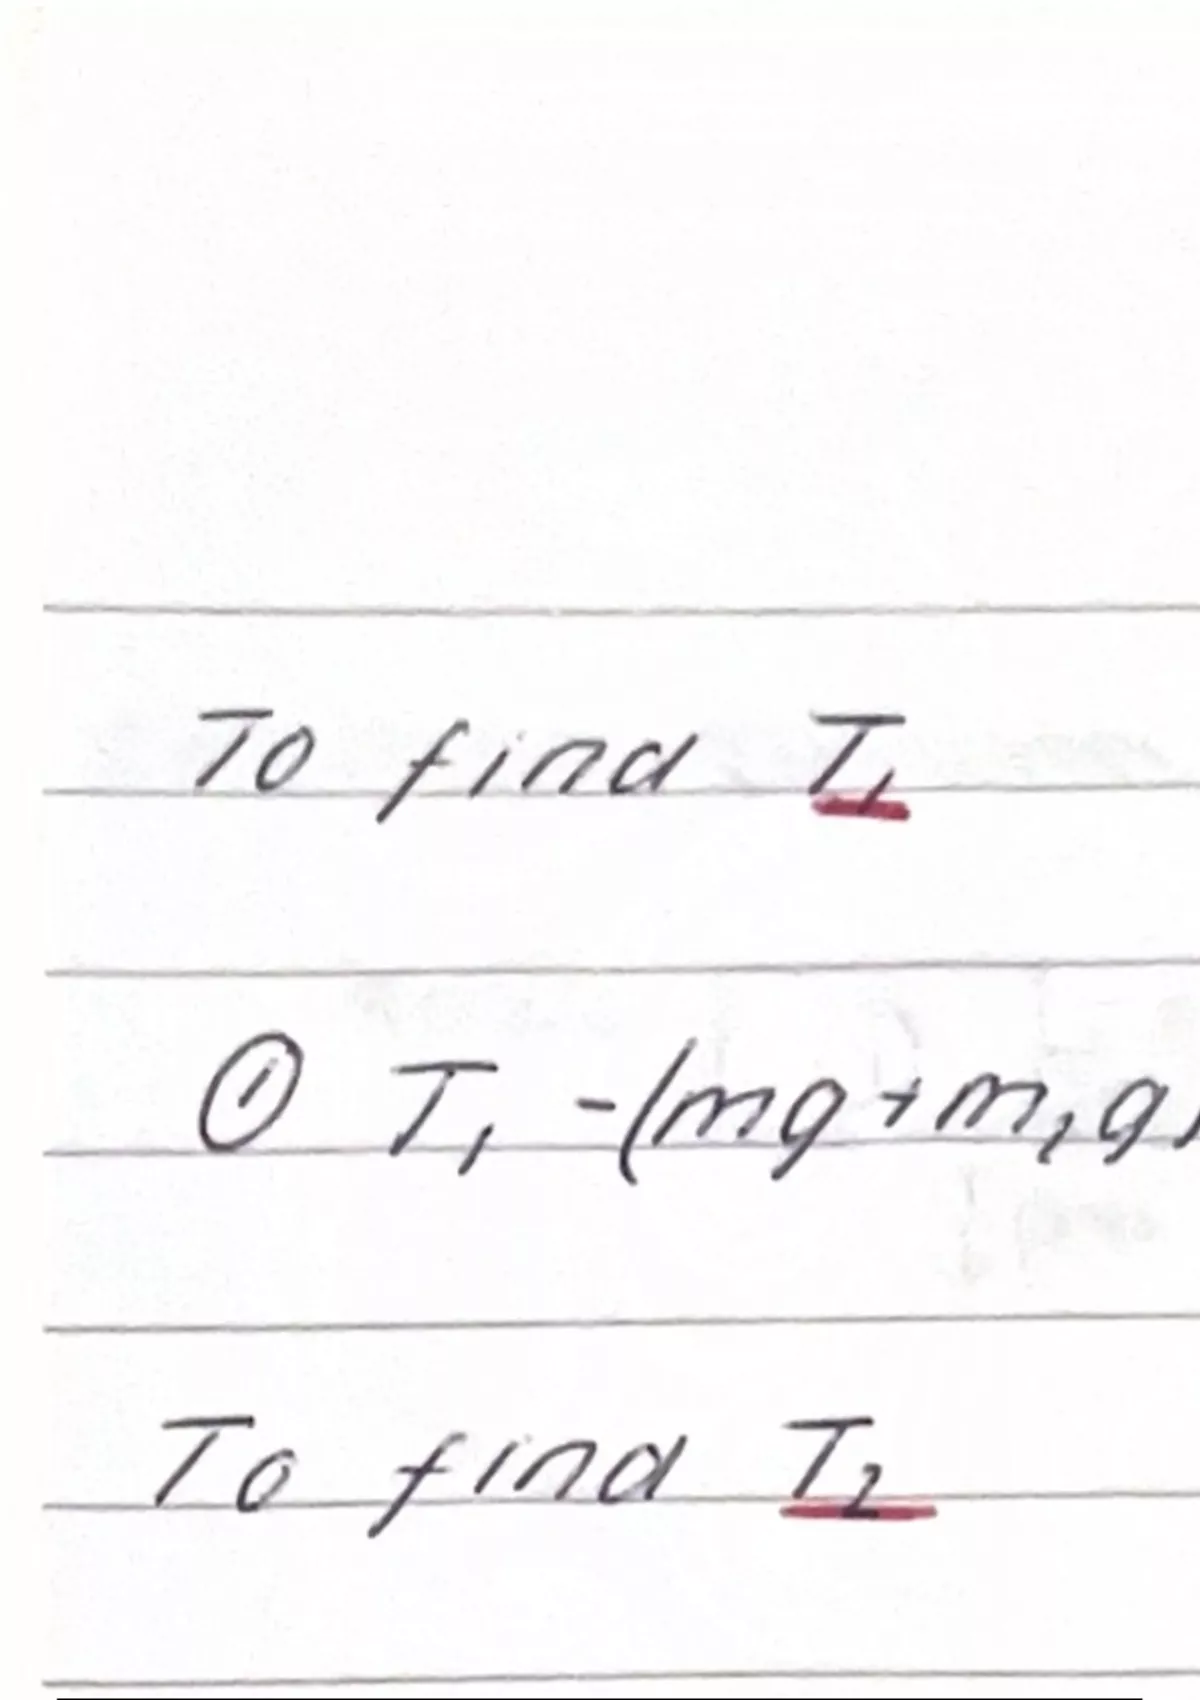 To find T₁
① T₁ -(mg+m₁g)
To find T₂